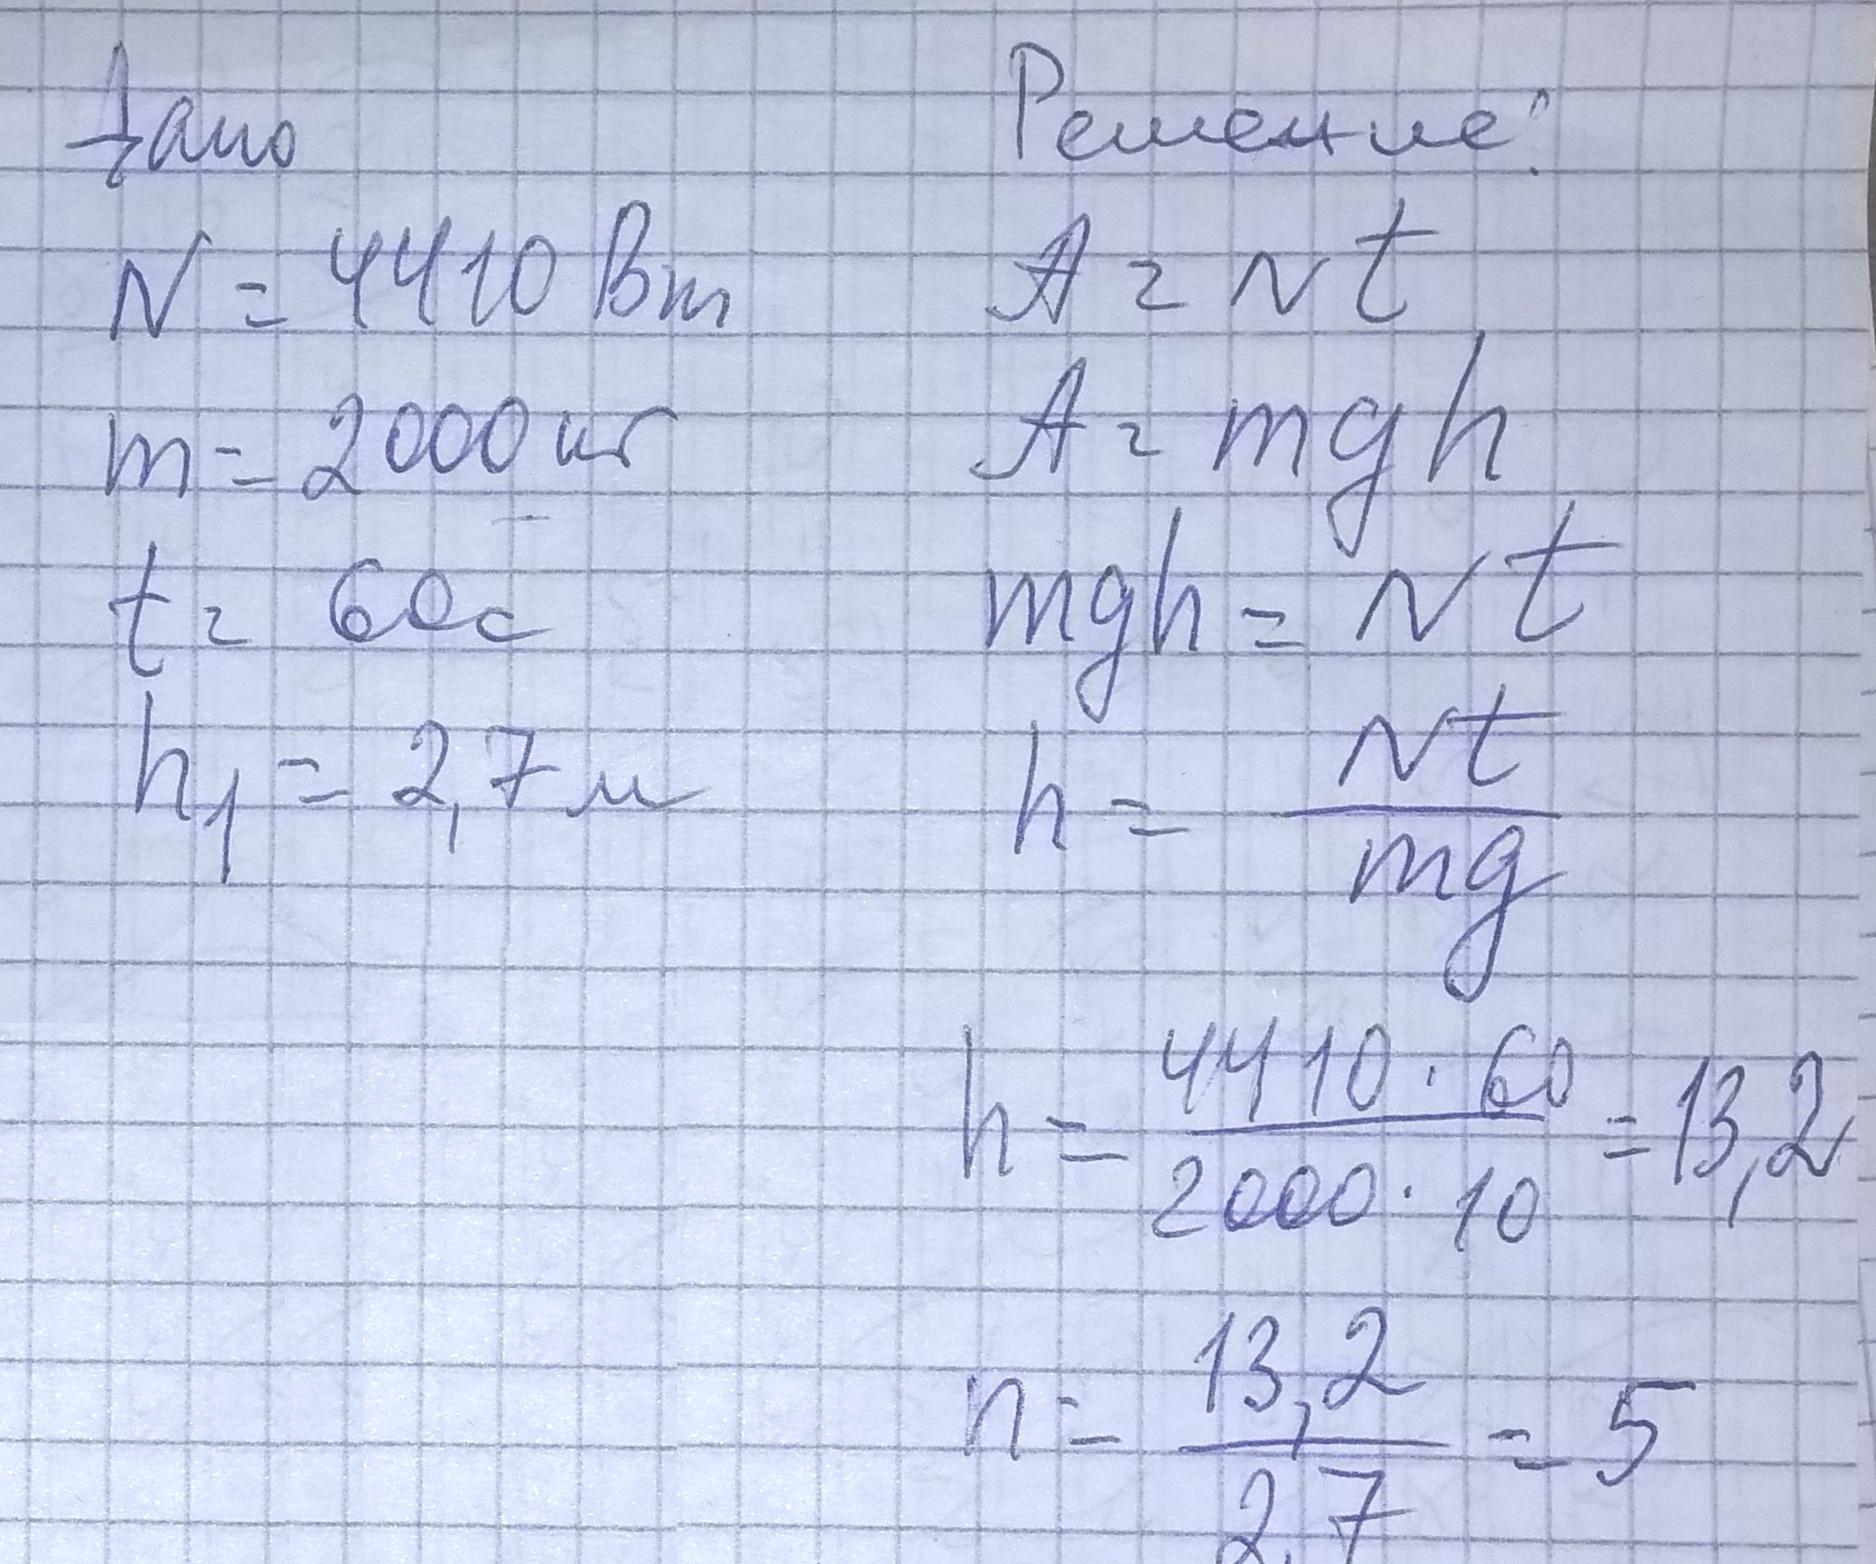 Дано
N = 4410 Вт
m = 2000 кг
t = 60 с
h₁ = 2,7 м
Решение:
A = Nt
A = mgh
mgh = Nt
h = Nt / mg
h = 4410 · 60 / 2000 · 10 = 13,2
n = 13,2 / 2,7 = 5